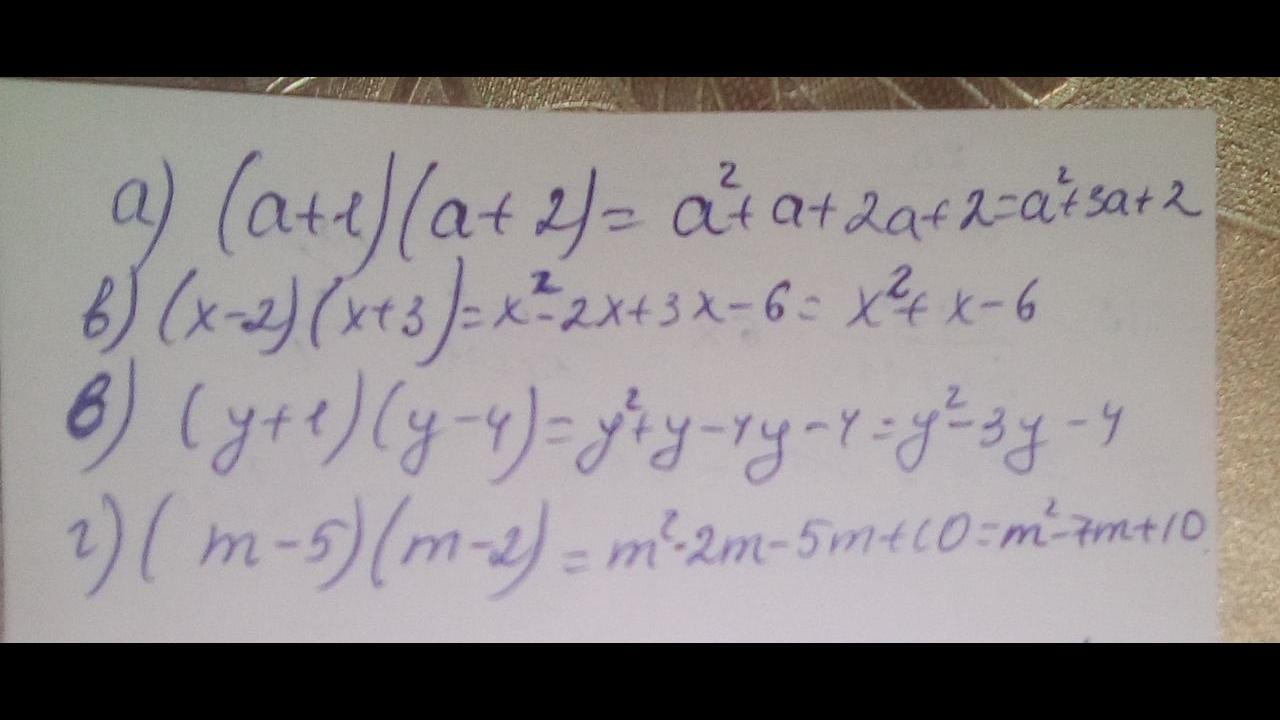 а) (a+1)(a+2)= a²+a+2a+2=a²+3a+2
в) (x-2)(x+3)=x²-2x+3x-6= x²+x-6
в) (y+1)(y-4)=y²+y-4y-4=y²-3y-4
г) (m-5)(m-2)=m²-2m-5m+10=m²-7m+10